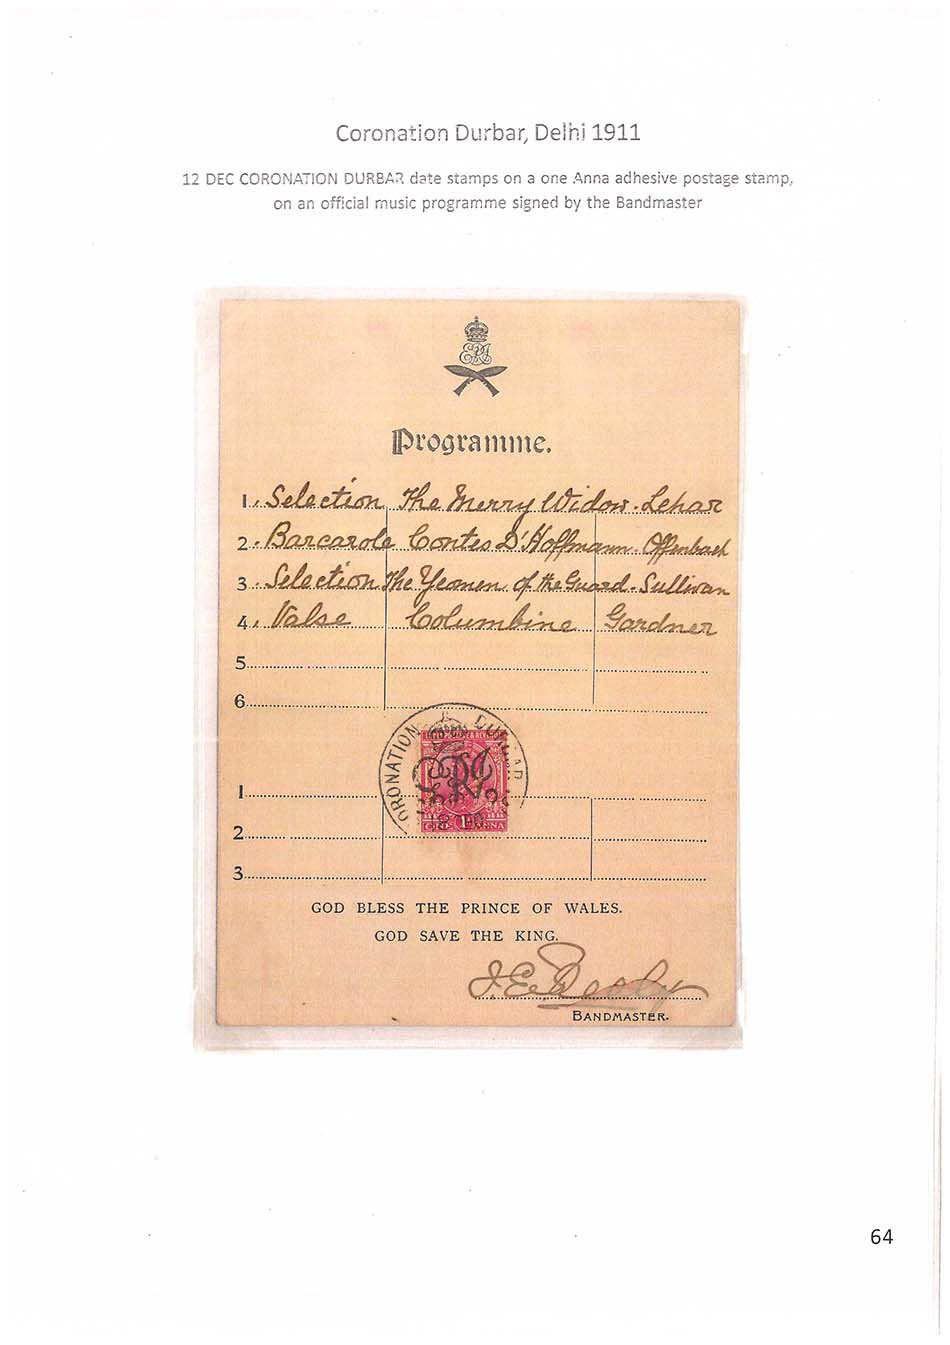 Coronation Durbar, Delhi 1911
12 DEC CORONATION DURBAR date stamps on a one Anna adhesive postage stamp,
on an official music programme signed by the Bandmaster
Programme.
1. Selection The Merry Widow. Lehar
2. Barcarole Contes D'Hoffmann. Offenbach
3. Selection The Yeomen of the Guard. Sullivan
4. Valse Columbine Gardner
5
6
CORONATION DURBAR
1
2
3
GOD BLESS THE PRINCE OF WALES.
GOD SAVE THE KING.
BANDMASTER.
64